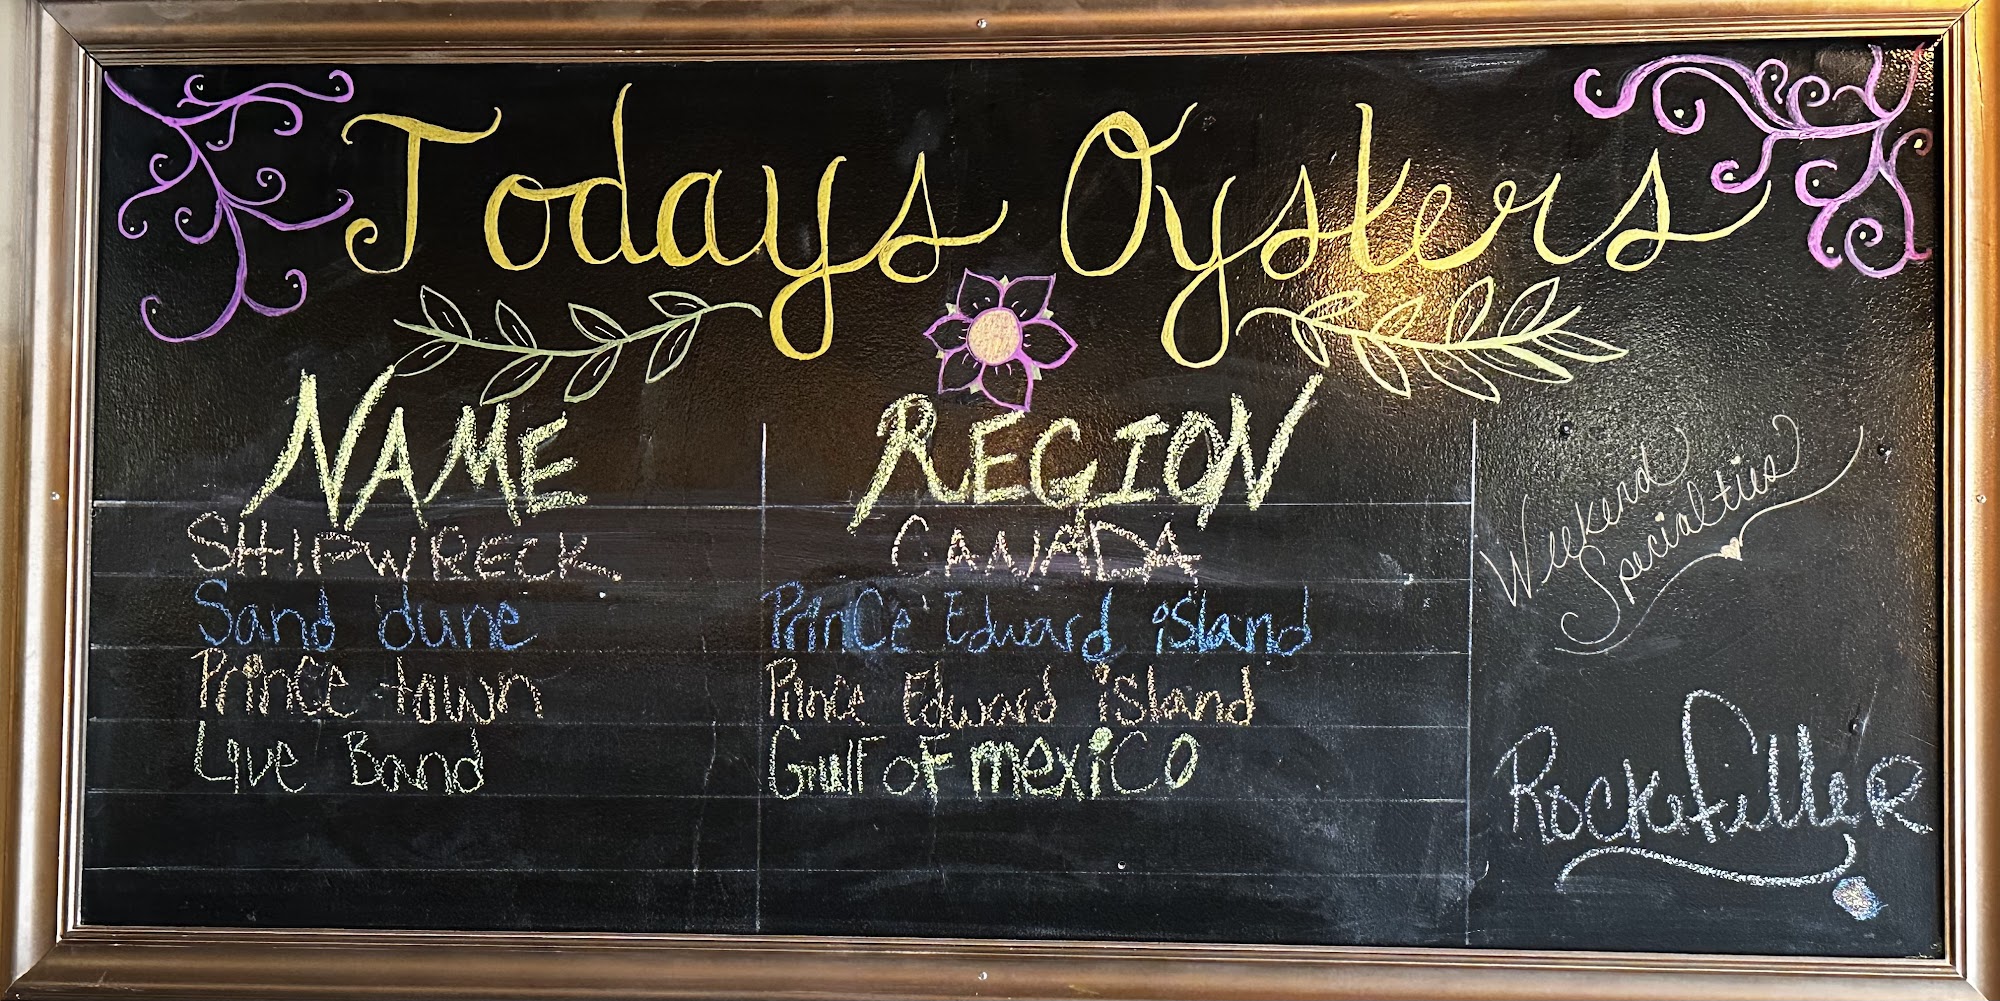 Todays Oysters
NAME REGION
SHIPWRECK CANADA
Sand dune Prince Edward island
Prince town Prince Edward island
Live Band Gulf of mexico
Weekend
Specialties
Rockefiller